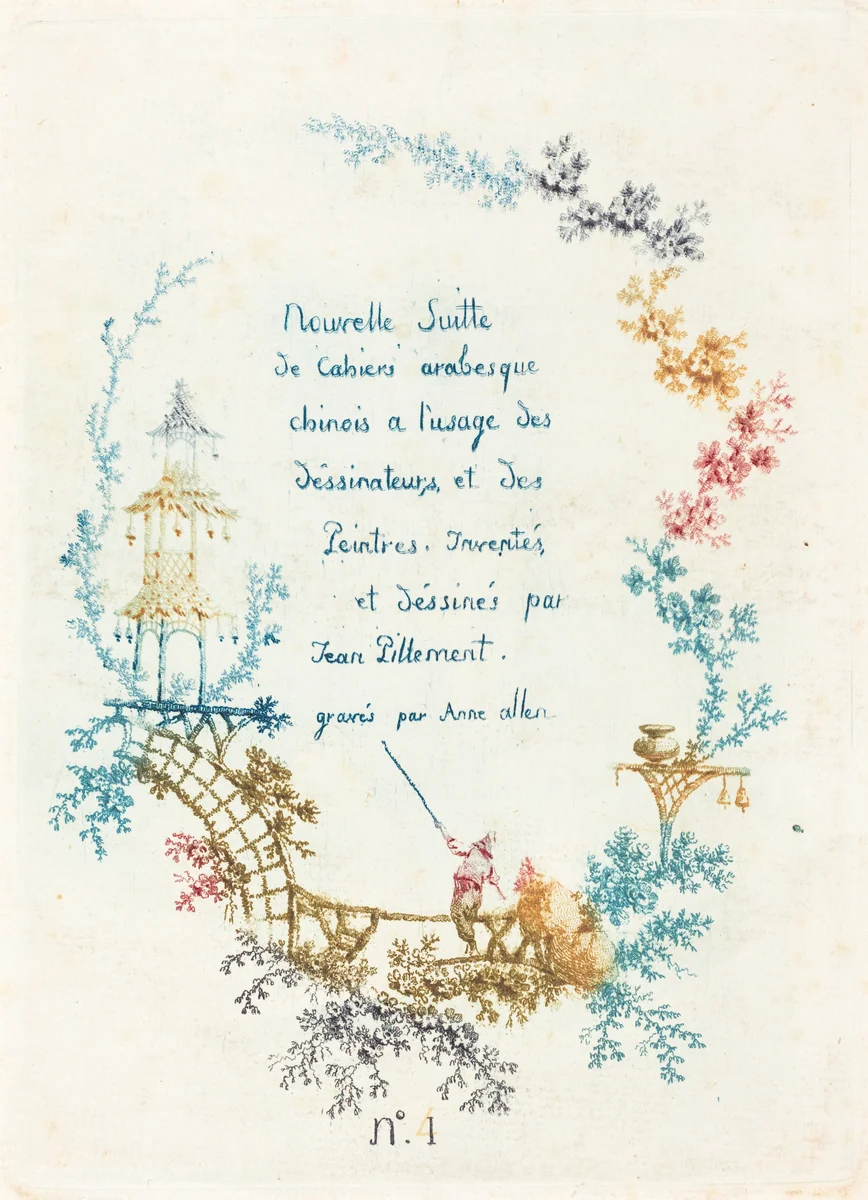 Nouvelle Suitte
de Cahiers arabesque
chinois a l'usage des
déssinateurs, et des
Peintres. Inventés,
et déssinés par
Jean Pillement.
gravés par Anne allen
n°. 1